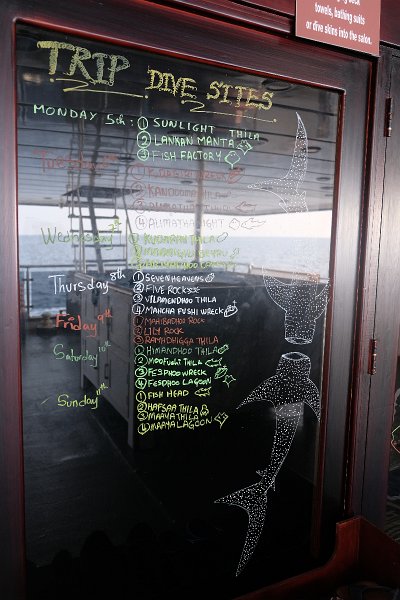 towels, bathing suits
or dive skins into the salon.
TRIP DIVE SITES
MONDAY 5th: ① SUNLIGHT THILA
② LANKAN MANTA
③ FISH FACTORY
Tuesday
④ ALIMATHA NIGHT
Wednesday
① KUDHIRAN THILA
Thursday 8th ① SEVEN HEAVENS
② FIVE ROCKS
③ VILAMENDHOO THILA
④ MAHCHA FUSHI WRECK
Friday 9th ① MAHIBADHOO ROCK
② LILY ROCK
③ RAMHDHIGGA THILA
Saturday 10th ① HIMANDHOO THILA
② MOOFUSHI THILA
③ FESDHOO WRECK
④ FESDHOO LAGOON
Sunday 11th ① FISH HEAD
② HAFSAA THILA
③ MAAYA THILA
④ MAAYA LAGOON